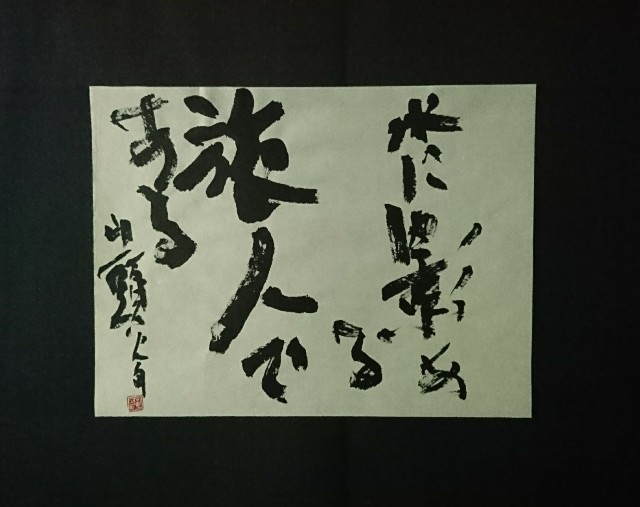 水に影あ
る
旅人で
ある
山頭火